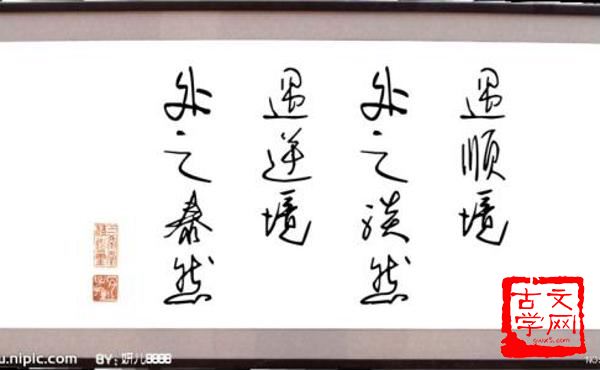 遇顺境
处之淡然
遇逆境
处之泰然
古文
学网
gwxs5.com
u.nipic.com
BY: 妍儿8888
NO: